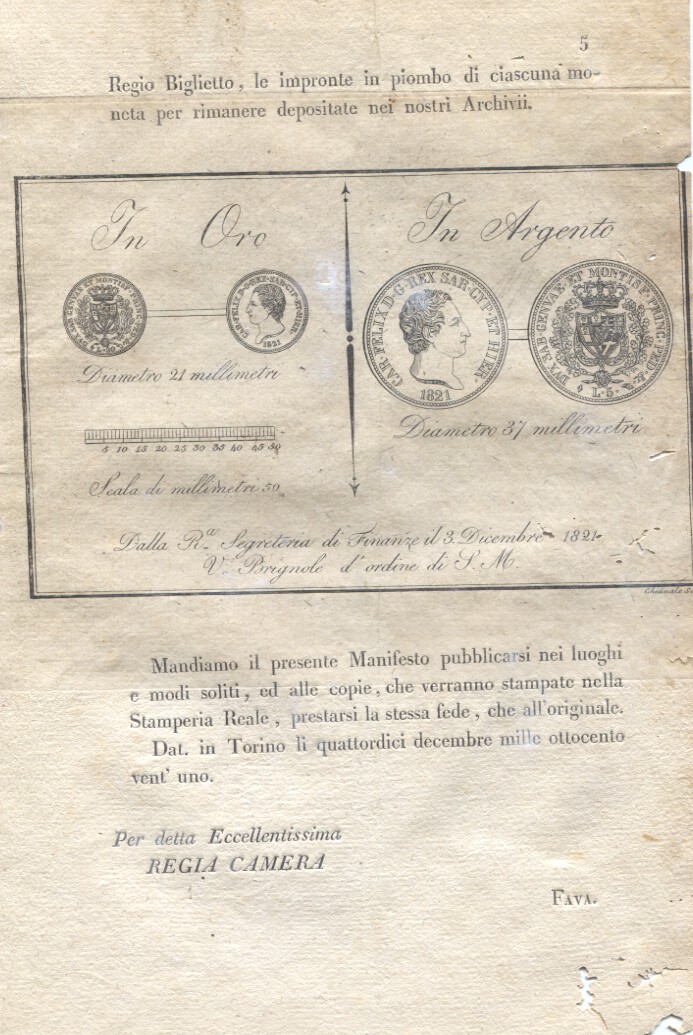 5
Regio Biglietto, le impronte in piombo di ciascuna mo-
neta per rimanere depositate nei nostri Archivii.
In Oro
Diametro 21 millimetri
5 10 15 20 25 30 35 40 45 50
Scala di millimetri 50
In Argento
CAR·FELIX D·G·REX SAR·CYP·ET HIER·
1821
DVX SAB·GENVAE·ET MONTISF·PRINC·PED·&
L·5·
Diametro 37 millimetri
CAR·FELIX D·G·REX·SAR·CYP·ET·HIER·
1821
Dalla R.ª Segreteria di Finanze il 3. Dicembre 1821.
V. Brignole d'ordine di S. M.
Mandiamo il presente Manifesto pubblicarsi nei luoghi
e modi soliti, ed alle copie, che verranno stampate nella
Stamperia Reale, prestarsi la stessa fede, che all'originale.
Dat. in Torino li quattordici decembre mille ottocento
vent' uno.
Per detta Eccellentissima
REGIA CAMERA
FAVA.